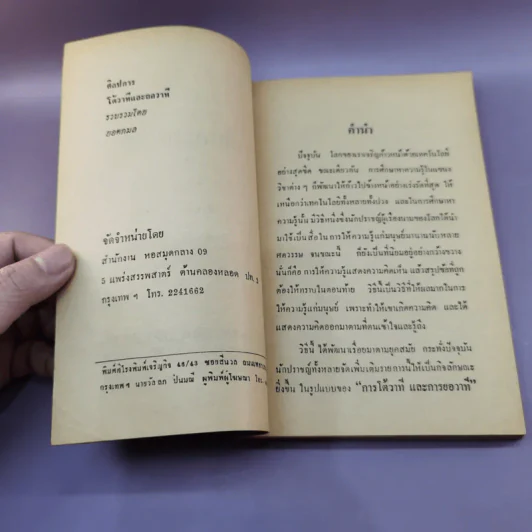 ศิลปการ
โต้วาทีและยอวาที
รวบรวมโดย
ยอดกมล
จัดจำหน่ายโดย
สำนักงาน หอสมุดกลาง 09
5 แพร่งสรรพสาตร์ ด้านคลองหลอด ปณ. 3
กรุงเทพ ฯ โทร. 2241662
พิมพ์ที่โรงพิมพ์เจริญกิจ 48/43 ซอยสีนวล
กรุงเทพฯ ปั้นมณี ผู้พิมพ์ผู้โฆษณา
คำนำ
ปัจจุบัน โลกของเราเจริญก้าวหน้าด้วยเทคโนโลยี
อย่างสุดขีด ขณะเดียวกัน การศึกษาหาความรู้ในแขนง
วิชาต่าง ๆ ก็พัฒนาให้ก้าวไปข้างหน้าอย่างเร่งรัดที่สุด ได้
เหนือกว่าเทคโนโลยีทั้งหลายทั้งปวง และในการศึกษาหา
ความรู้นั้น มีวิธีหนึ่งซึ่งนักปราชญ์ผู้เรืองนามของโลกได้นำ
มาใช้เป็นสื่อใน การให้ความรู้แก่มนุษย์มานานนับหลาย
ศตวรรษ จนขณะนี้ ก็ยังเป็นที่นิยมอยู่อย่างกว้างขวาง
นั่นก็คือ การให้ความรู้แสดงความคิดเห็น แล้วสรุปข้อที่ถูก
ต้องให้ทราบในตอนท้าย วิธีนี้เป็นวิธีที่ให้ผลมากในการ
ให้ความรู้แก่มนุษย์ เพราะทำให้เขาเกิดความคิด และได้
แสดงความคิดออกมาตามที่ตนเข้าใจและรู้ถึง
วิธีนี้ ได้พัฒนาเรื่อยมาตามยุคสมัย กระทั่งปัจจุบัน
นักปราชญ์ทั้งหลายจัดเพิ่มเติมรายการนี้ให้เป็นกิจลักษณะ
ยิ่งขึ้น ในรูปแบบของ "การโต้วาที และการยอวาที"